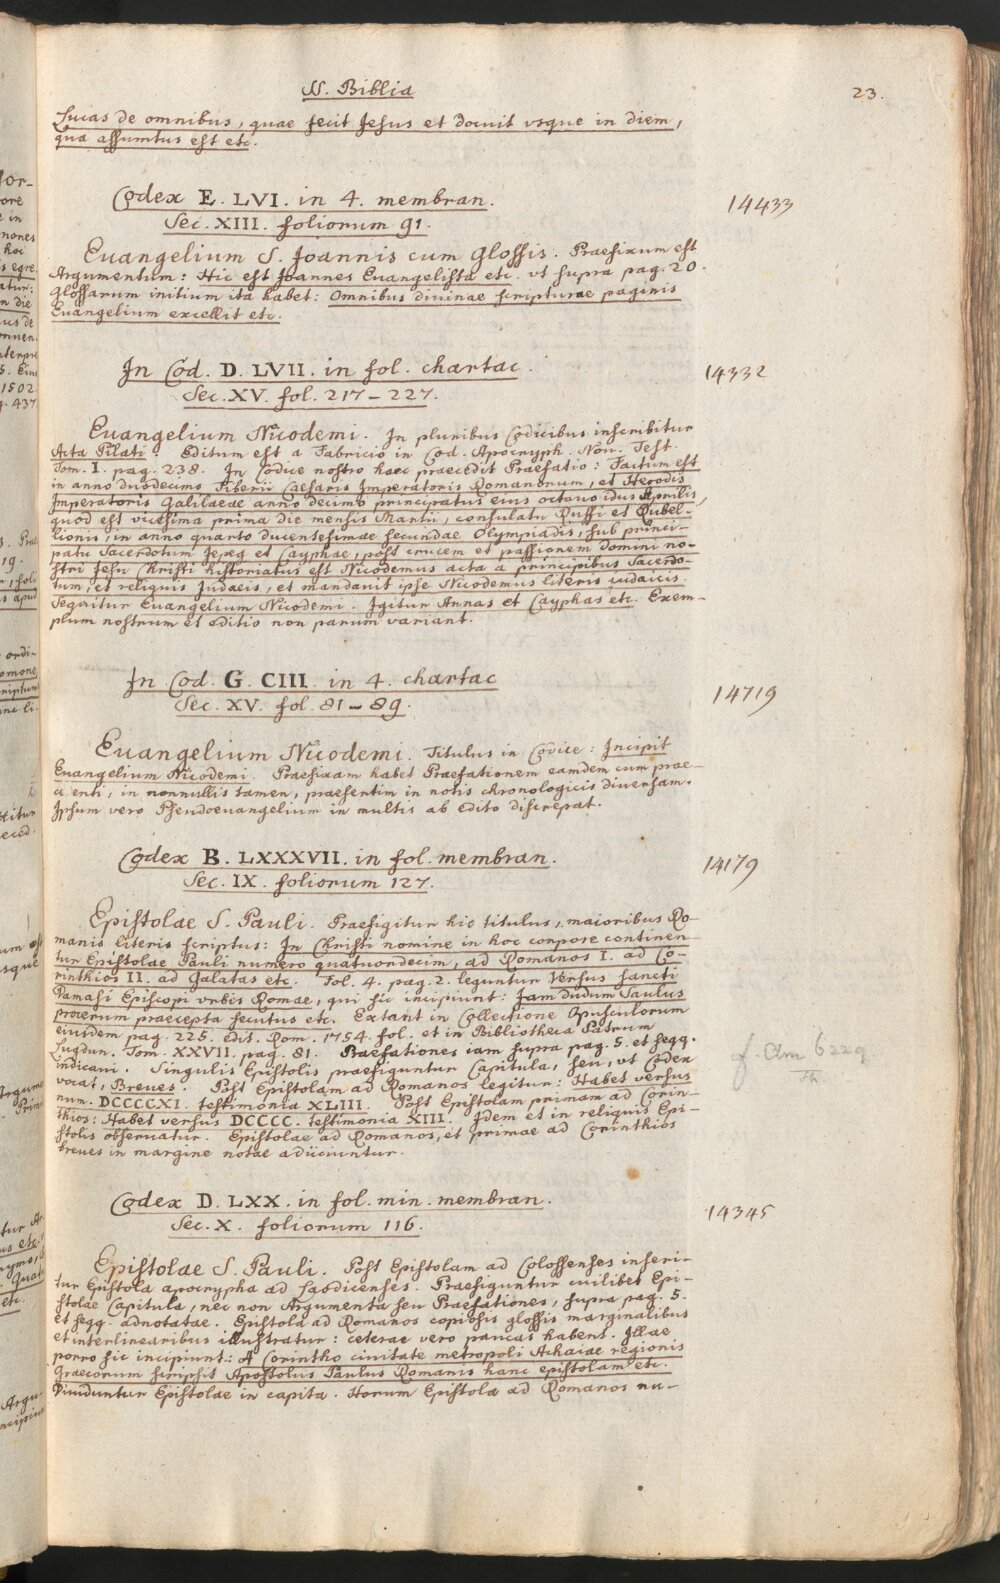 SS. Biblia
23.
Lucas de omnibus, quae fecit Jesus et docuit vsque in diem,
qua assumtus est etc.
Codex E. LVI. in 4. membran.
14433
Sec. XIII. foliorum 91.
Euangelium S. Joannis cum Glossis. Praefixum est
Argumentum: Hic est Joannes Euangelista etc. vt supra pag. 20.
Glossarum initium ita habet: Omnibus diuinae scripturae paginis
Euangelium excellit etc.
In Cod. D. LVII. in fol. chartac.
14332
Sec. XV. fol. 217 – 227.
Euangelium Nicodemi. In pluribus Codicibus inscribitur
Acta Pilati. Editum est a Fabricio in Cod. Apocryph. Nou. Test.
Tom. I. pag. 238. In Codice nostro haec praecedit Praefatio: Factum est
in anno duodecimo Tiberii Caesaris Imperatoris Romanorum, et Herodis
Imperatoris Galilaeae anno decimo principatus eius octauo idus Aprilis,
quod est vicesima prima die mensis Martii, consulatu Ruffi et Rubel-
lionis, in anno quarto ducentesimae secundae Olympiadis, sub princi-
patu Sacerdotum Jepeg et Cayphae, post crucem et passionem Domini no-
stri Jesu Christi historiatus est Nicodemus acta a principibus Sacerdo-
tum, et reliquis Judaeis, et mandauit ipse Nicodemus literis iudaicis.
Sequitur Euangelium Nicodemi. Igitur Annas et Cayphas etc. Exem-
plum nostrum et editio non parum variant.
In Cod. G. CIII. in 4. chartac
14719
Sec. XV. fol. 81 – 89.
Euangelium Nicodemi. Titulus in Codice: Incipit
Euangelium Nicodemi. Praefixam habet Praefationem eamdem cum prae-
cedenti, in nonnullis tamen, praesertim in notis chronologicis diuersam.
Ipsum vero Pseudoeuangelium in multis ab edito discrepat.
Codex B. LXXXVII. in fol. membran.
14179
Sec. IX. foliorum 127.
Epistolae S. Pauli. Praefigitur hic titulus, maioribus Ro-
manis literis scriptus: In Christi nomine in hoc corpore continen-
tur Epistolae Pauli numero quatuordecim, ad Romanos I. ad Co-
rinthios II. ad Galatas etc. Fol. 4. pag. 2. leguntur Versus sancti
Damasi Episcopi vrbis Romae, qui sic incipiunt: Jam dudum Saulus
procerum praecepta secutus etc. Extant in Collectione Opusculorum
eiusdem pag. 225. edit. Rom. 1754. fol. et in Bibliotheca Patrum
Lugdun. Tom. XXVII. pag. 81. Praefationes iam supra pag. 5. et seqq.
indicaui. Singulis Epistolis praefiguntur Capitula, seu, vt Codex
vocat, Breues. Post Epistolam ad Romanos legitur: Habet versus
num. DCCCCXI. testimonia XLIII. Post Epistolam primam ad Corin-
thios: Habet versus DCCCC. testimonia XIII. Idem et in reliquis Epi-
stolis obseruatur. Epistolae ad Romanos, et primae ad Corinthios
breues in margine notae adiiciuntur.
cf. Clm 6229
Codex D. LXX. in fol. min. membran.
14345
Sec. X. foliorum 116.
Epistolae S. Pauli. Post Epistolam ad Colossenses inseri-
tur Epistola apocrypha ad Laodicenses. Praefiguntur cuilibet Epi-
stolae Capitula, nec non Argumenta seu Praefationes, supra pag. 5.
et seqq. adnotatae. Epistola ad Romanos copiosis glossis marginalibus
et interlinearibus illustratur: ceterae vero paucas habent. Illae
porro sic incipiunt: A Corintho ciuitate metropoli Achaiae regionis
Graecorum scripsit Apostolus Paulus Romanis hanc epistolam etc.
Diuiduntur Epistolae in capita. Horum Epistola ad Romanos nu-